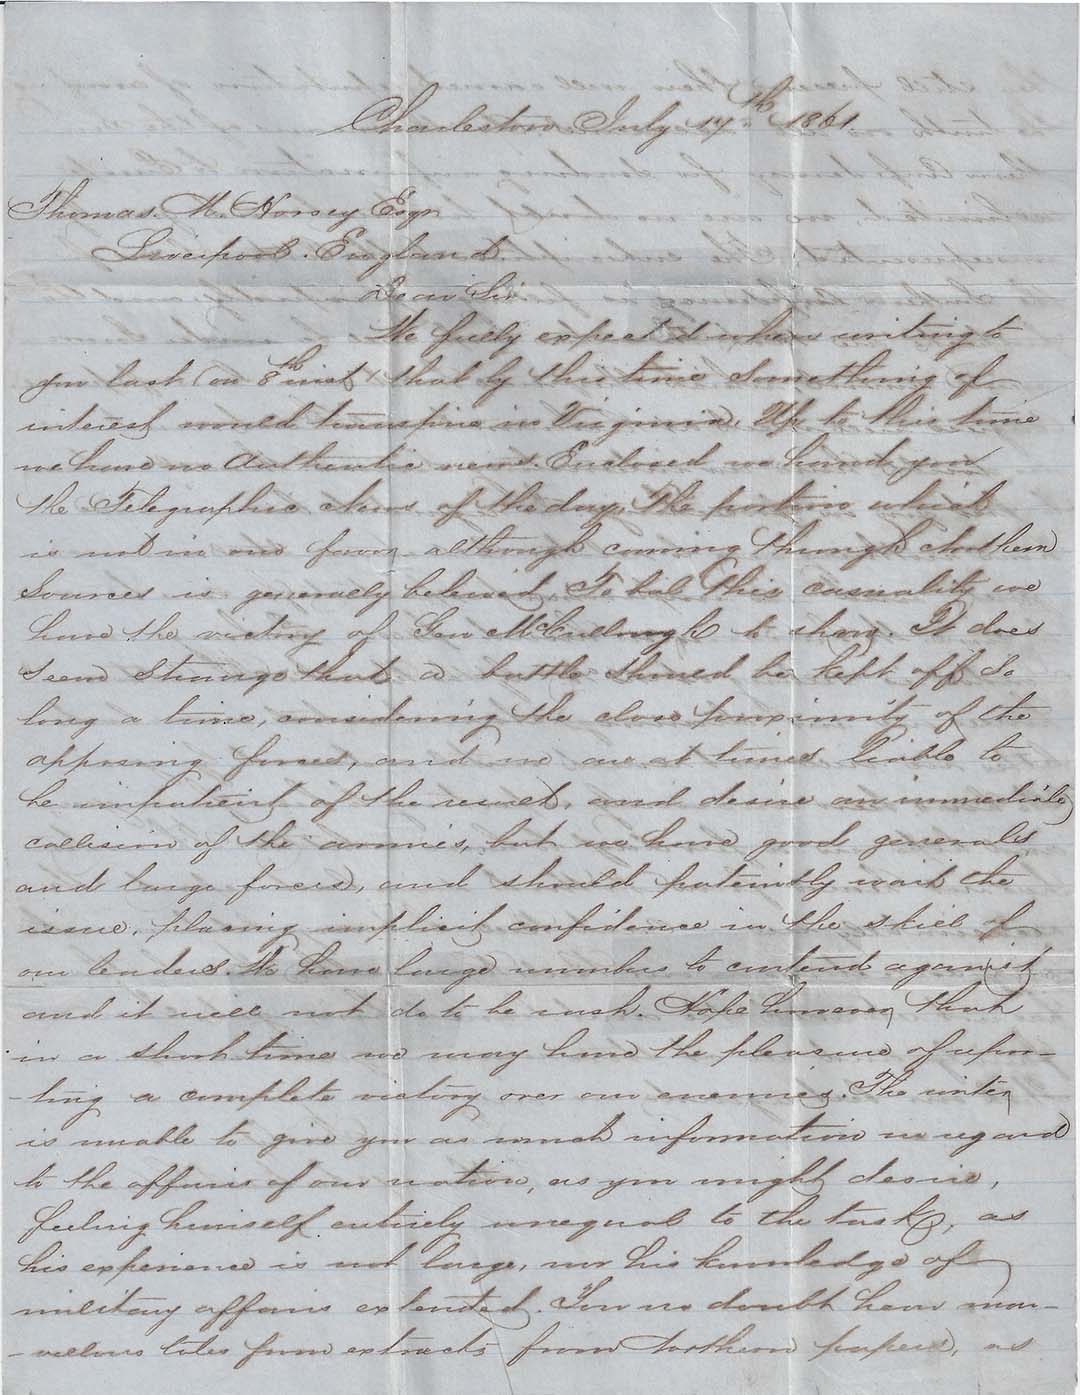 Charleston July 17th 1861.
Thomas. M. Horsey Esqr
Liverpool. England.
Dear Sir.
We fully expected when writing to
you last (on 8th inst) that by this time something of
interest would transpire in Virginia. Up to this time
we have no Authentic news. Enclosed we hand you
the Telegraphic News of the day. The portion which
is not in our favor although coming through Northern
Sources is generally believed. To bal this casualty we
have the victory of Gen McCullough to show. It does
seem strange that a battle should be kept off so
long a time, considering the close proximity of the
opposing forces, and we are at times liable to
be impatient of the result, and desire an immediate
collision of the armies, but we have good generals
and large forces, and should patiently wait the
issue, placing implicit confidence in the skill of
our leaders. We have large numbers to contend against
and it will not do to be rash. Hope however, that
in a short time we may have the pleasure of repor-
-ting a complete victory over our enemies. The writer
is unable to give you as much information in regard
to the affairs of our nation, as you might desire,
feeling himself entirely unequal to the task, as
his experience is not large, nor his knowledge of
military affairs extended. You no doubt have mar-
-vellous tales from extracts from Northern papers, as